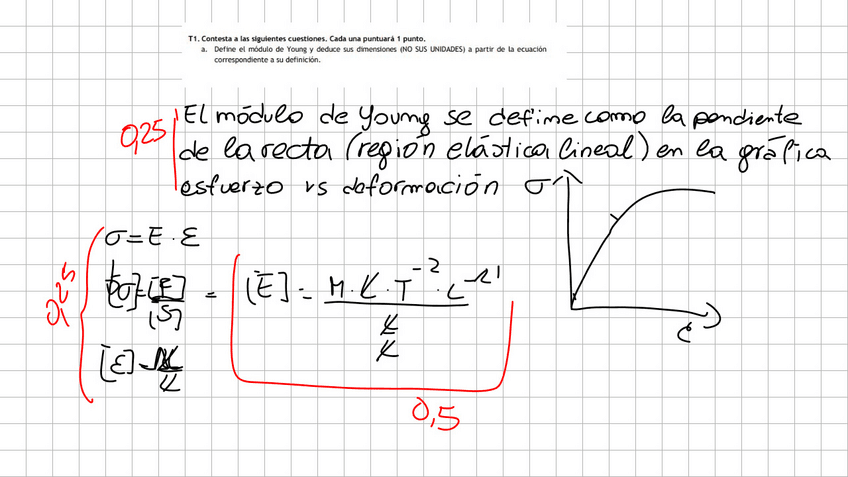 T1. Contesta a las siguientes cuestiones. Cada una puntuará 1 punto.
a. Define el módulo de Young y deduce sus dimensiones (NO SUS UNIDADES) a partir de la ecuación
correspondiente a su definición.
0,25
El módulo de Young se define como la pendiente
de la recta (región elástica lineal) en la gráfica
esfuerzo vs deformación σ
σ = E · ε
0,25
[σ] = [F]/[S] = [E] = M · L · T⁻² · L⁻²
L
L
[ε] =
L
ε
0,5